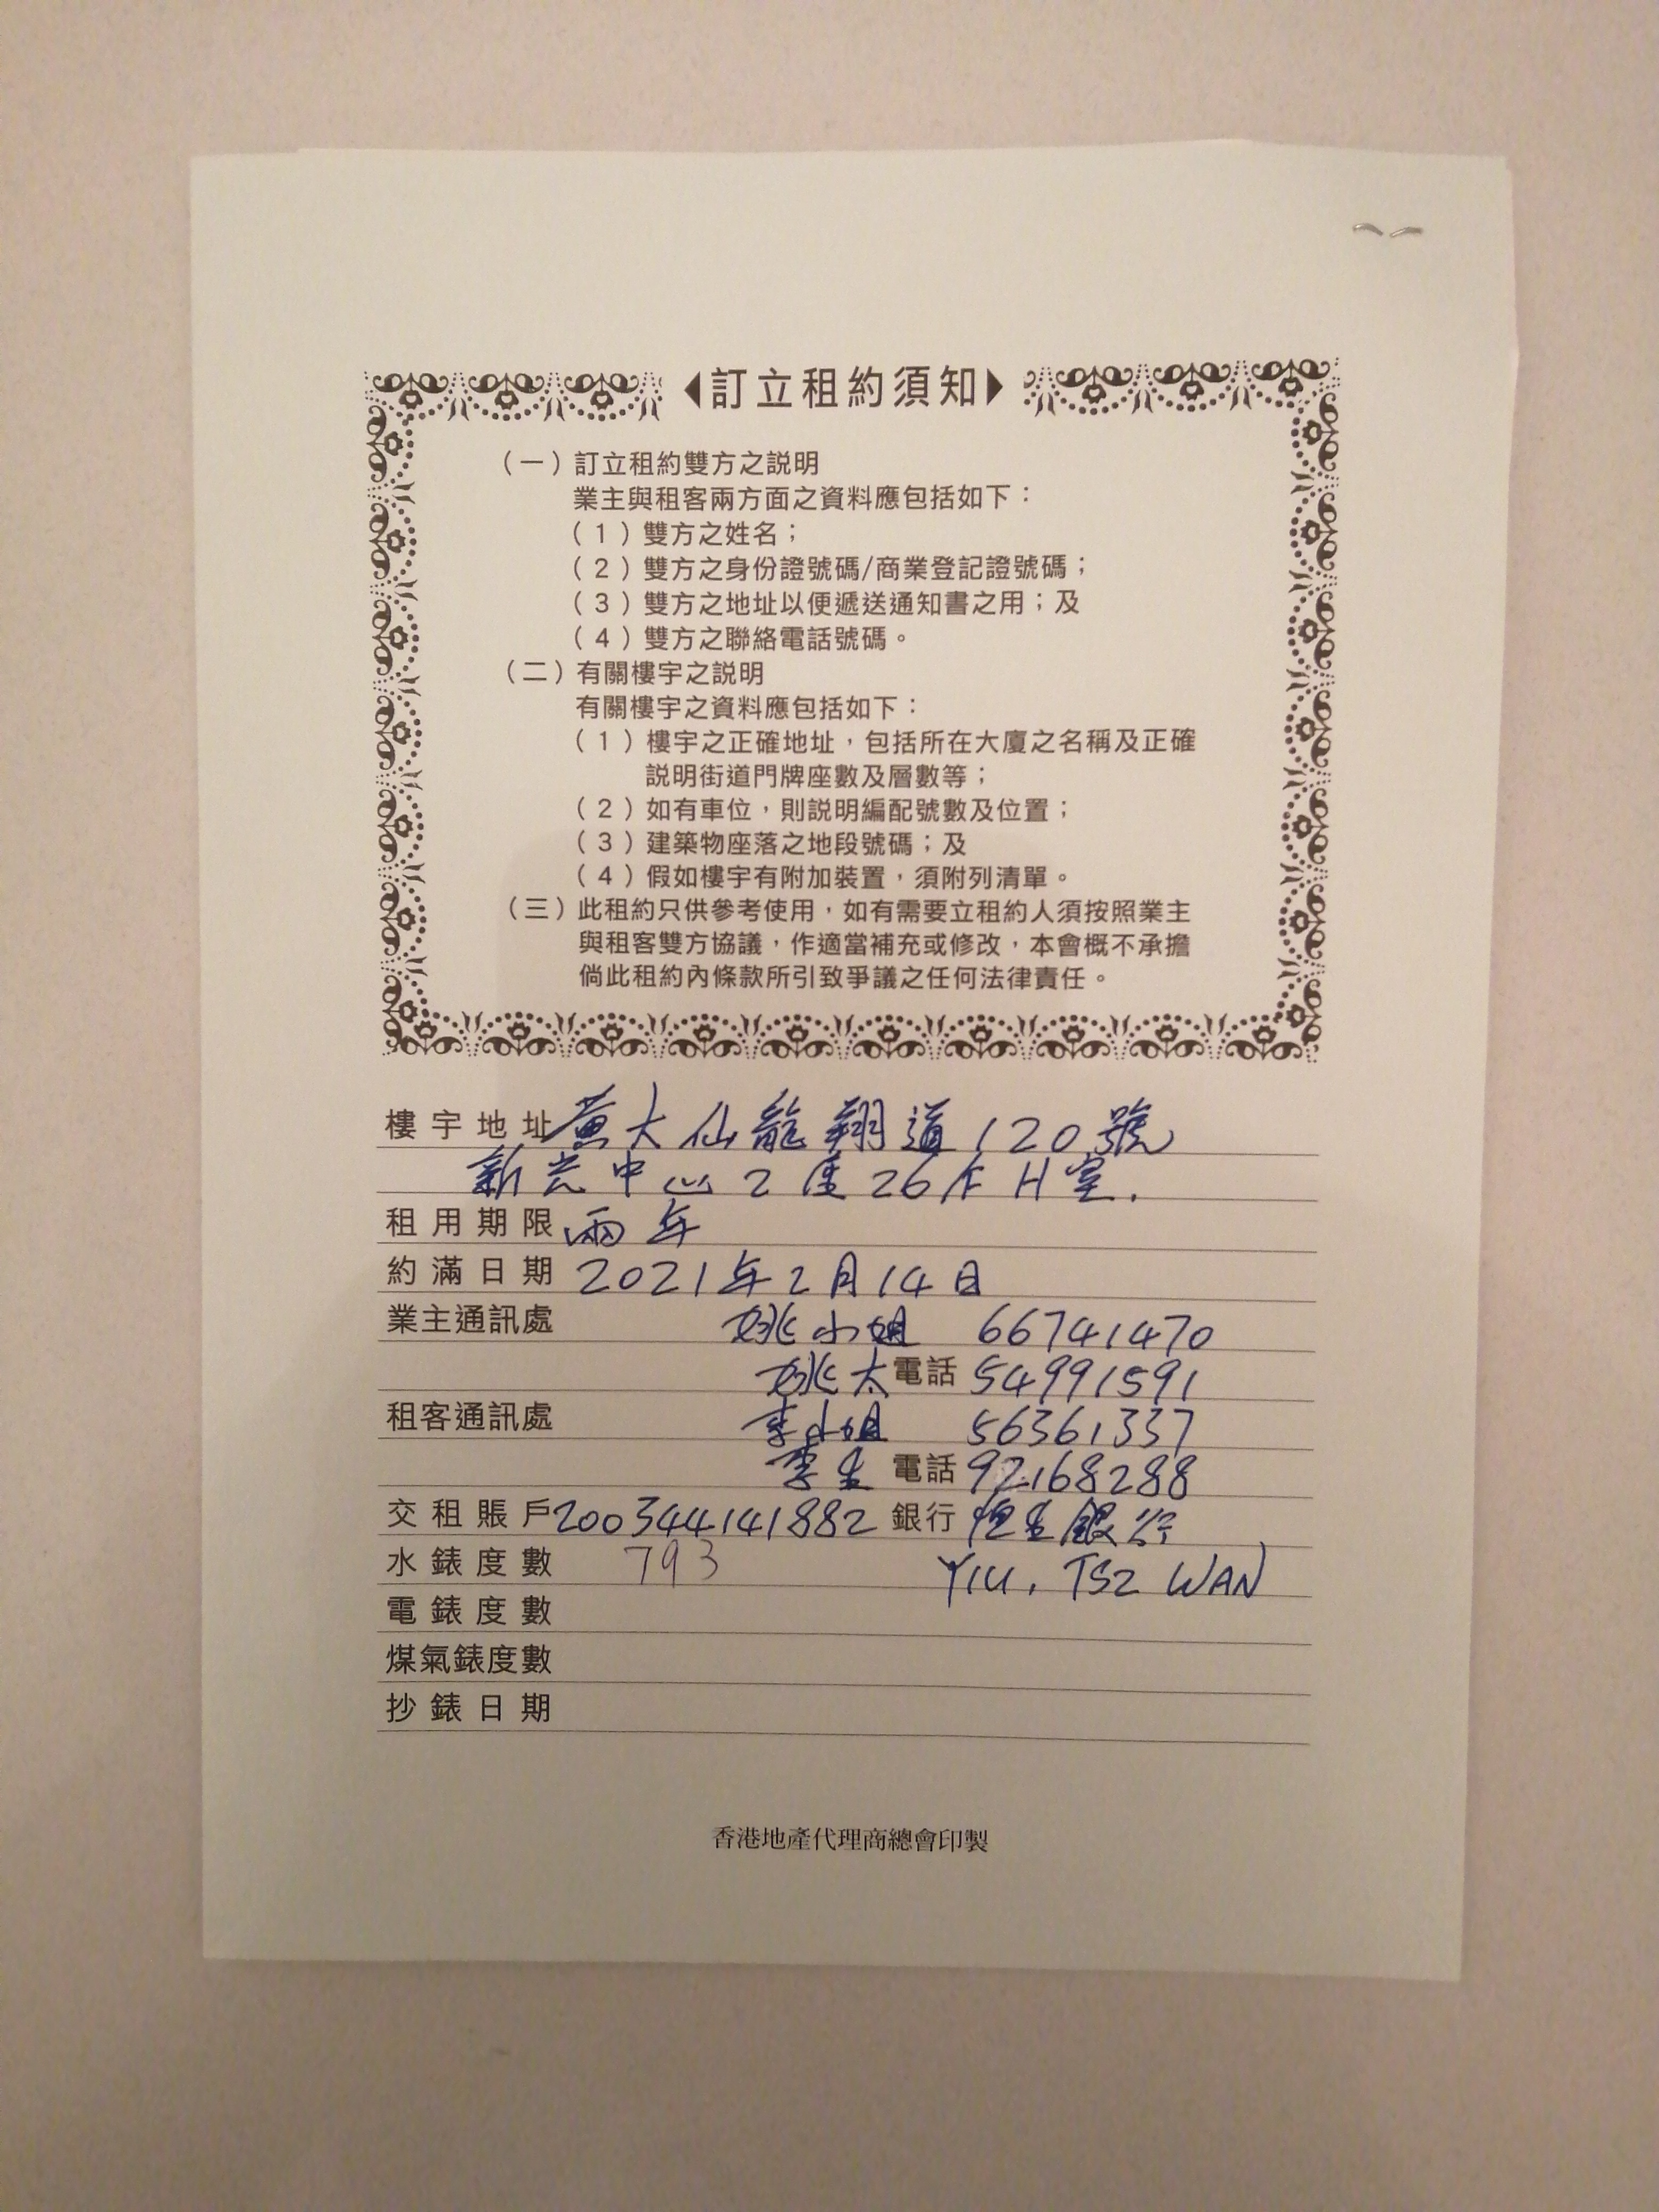 訂立租約須知
(一)訂立租約雙方之說明
業主與租客兩方面之資料應包括如下：
(1)雙方之姓名；
(2)雙方之身份證號碼/商業登記證號碼；
(3)雙方之地址以便遞送通知書之用；及
(4)雙方之聯絡電話號碼。
(二)有關樓宇之說明
有關樓宇之資料應包括如下：
(1)樓宇之正確地址，包括所在大廈之名稱及正確
說明街道門牌座數及層數等；
(2)如有車位，則說明編配號數及位置；
(3)建築物座落之地段號碼；及
(4)假如樓宇有附加裝置，須附列清單。
(三)此租約只供參考使用，如有需要立租約人須按照業主
與租客雙方協議，作適當補充或修改，本會概不承擔
倘此租約內條款所引致爭議之任何法律責任。
樓宇地址 黃大仙龍翔道120號
新光中心2座26/F H室.
租用期限 兩年
約滿日期 2021年2月14日
業主通訊處 姚小姐 66741470
姚太 電話 54991591
租客通訊處 李小姐 56361337
李生 電話 92168288
交租賬戶 200344141882 銀行 恒生銀行
水錶度數 793 YIU, TSZ WAN
電錶度數
煤氣錶度數
抄錶日期
香港地產代理商總會印製